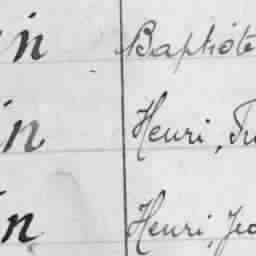 in Baptiste
in Henri, Fr
in Henri, Je